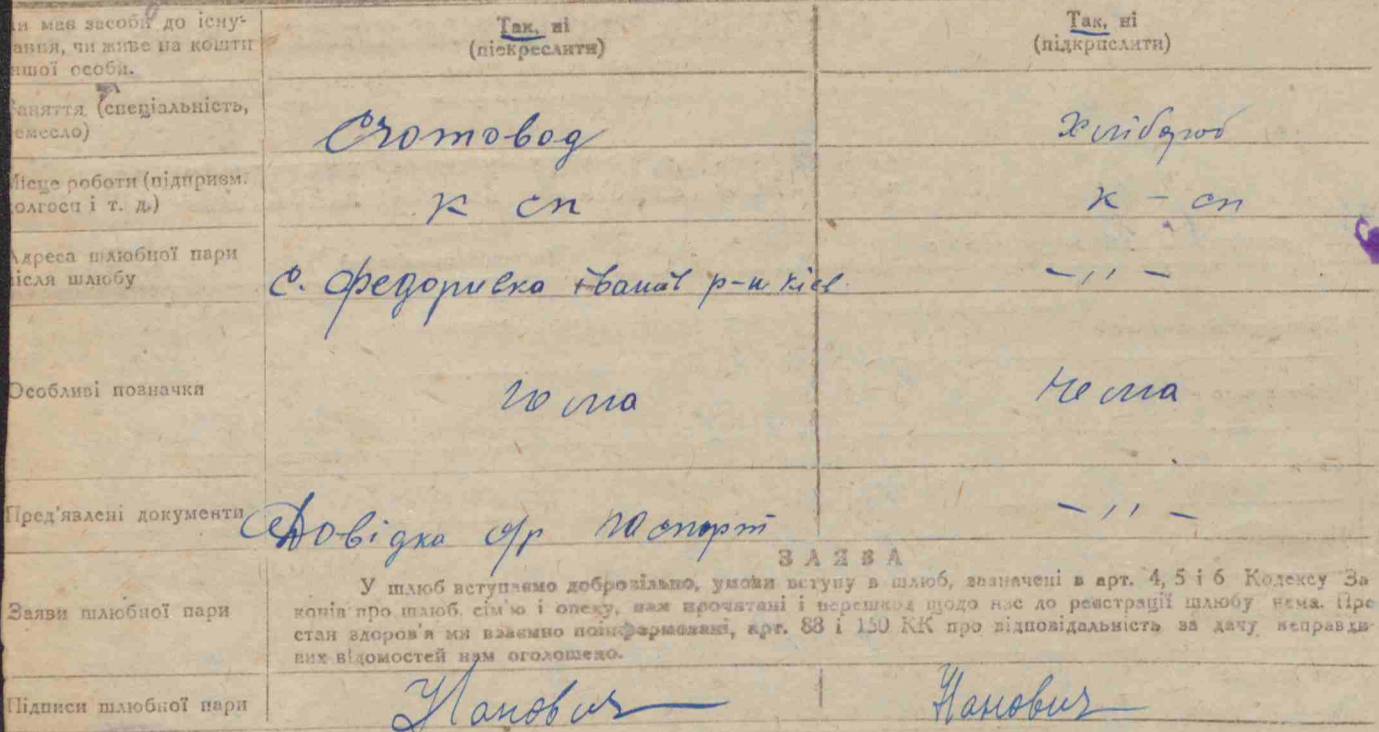 ни має засоби до існу-
вання, чи живе на кошти
ншої особи.
Так, ні
(піекреслити)
Так, ні
(підкрислити)
аняття (спеціальність,
емесло)
Счотовод
Хлібороб
Місце роботи (підприєм.
олгосп і т. д.)
к сп
к - сп
Адреса шлюбної пари
ісля шлюбу
с. Федоривка Іванків р-н Київ.
- ,, -
Особливі позначки
Нема
Нема
Пред'явлені документи
Довідка с/р паспорт
- ,, -
ЗАЯВА
Заяви шлюбної пари
У шлюб вступаємо добровільно, умови вступу в шлюб, зазначені в арт. 4, 5 і 6 Кодексу За
конів про шлюб, сім'ю і опеку, нам прочитані і перешкод щодо нас до реєстрації шлюбу нема. Про
стан здоров'я ми взаємно поінформовані, арт. 88 і 150 КК про відповідальність за дачу неправди-
вих відомостей нам оголошедо.
Підписи шлюбної пари